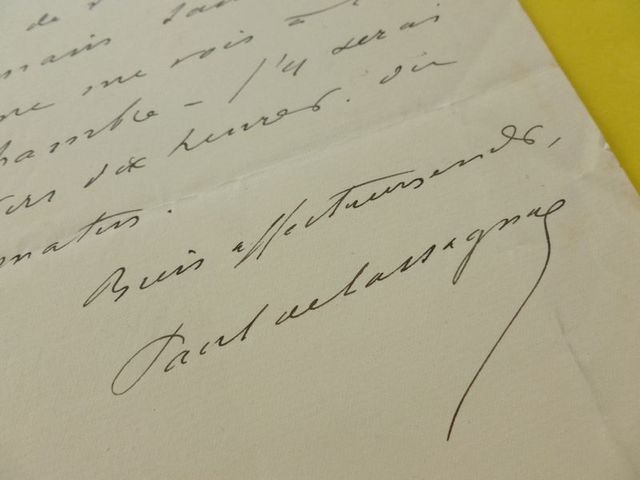 de
mais
me me vois à
chambre – j'y serai
vers dix heures. du
matin.
Bien affectueusement,
Paul de Cassagnac